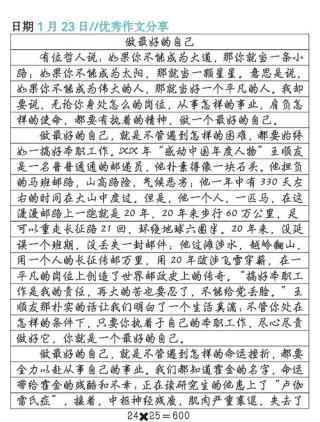 日期1月23日//优秀作文分享
做最好的自己
有位哲人说：如果你不能成为大道，那你就当一条小
路；如果你不能成为太阳，那就当一颗星星。意思是说，
如果你不能成为伟大的人，那就当好一个平凡的人。我却
要说，无论你身处怎么的岗位，从事怎样的事业，肩负怎
样的使命，都要有执着的精神，做一个最好的自己。
做最好的自己，就是不管遇到怎样的困难，都要始终
如一搞好本职工作。XXX年“感动中国年度人物”王顺友
是一名普普通通的邮递员，他朴素得像一块石头。他担负
的马班邮路，山高路险，气候恶劣；他一年中有330天左
右的时间在大山中度过。但是，他一个人，一匹马，在这
漫漫邮路上一跑就是20年，20年来步行60万公里，足
可以重走长征路21回，环绕地球六圈字。20年来，没延
误一个班期，没丢失一封邮件；他过滩涉水，越岭翻山，
用一个人的长征传邮万里，用20年跋涉飞雪穿薪，在一
平凡的岗位上创造了世界邮政史上的传奇。“搞好本职工
作是我的责任，再大的苦也要忍了，不能给党丢脸。”王
顺友那朴实的话让我们明白了一个生活真滞：不管你处在
怎样的条件下，只要你执着于自己的本职工作，尽心尽责
做好它，你就是一个最好的自己。
做最好的自己，就是不管遇到怎样的命运挫折，都要
全力以赴从事自己的事业。我们都知道霍金的名字，命运
带给霍金的残酷和不幸；正在读研究生的他患上了“卢伽
雷氏症”，接着，中枢神经残废，肌肉严重衰退，失去了
24✖25=600